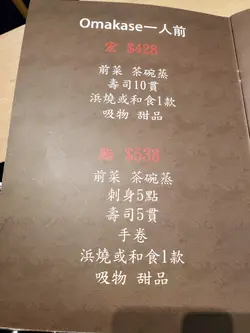 Omakase一人前
宏 $428
前菜 茶碗蒸
壽司10貫
浜燒或和食1款
吸物 甜品
$538
前菜 茶碗蒸
刺身5點
壽司5貫
手卷
浜燒或和食1款
吸物 甜品